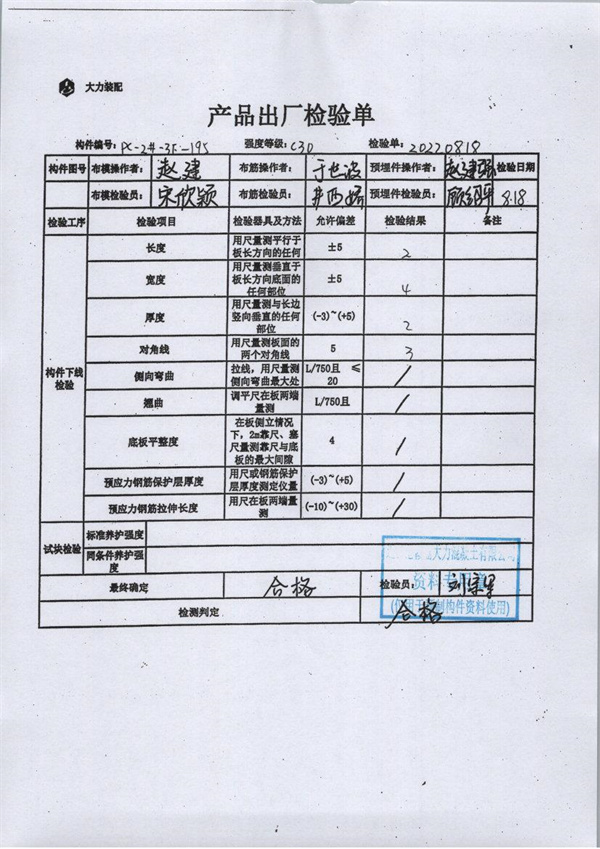 大力装配
产品出厂检验单
构件编号: PC-2#-3F-195 强度等级: C30 检验单: 20220818
构件图号 布模操作者: 赵建 布筋操作者: 于世波 预埋件操作者: 赵建强 检验日期
布模检验员: 宋欣颖 布筋检验员: 预埋件检验员: 8.18
检验工序 检验项目 检验器具及方法 允许偏差 检验结果 备注
构件下线检验
长度 用尺量测平行于板长方向的任何 ±5 2
宽度 用尺量测垂直于板长方向底面的任何部位 ±5 4
厚度 用尺量测与长边竖向垂直的任何部位 (-3)~(+5) 2
对角线 用尺量测板面的两个对角线 5 3
侧向弯曲 拉线，用尺量测侧向弯曲最大处 L/750且 ≤20 /
翘曲 调平尺在板两端量测 L/750且 /
底板平整度 在板侧立情况下，2m靠尺、塞尺量测靠尺与底板的最大间隙 4 /
预应力钢筋保护层厚度 用尺或钢筋保护层厚度测定仪量 (-3)~(+5) /
预应力钢筋拉伸长度 用尺在板两端量测 (-10)~(+30) /
试块检验 标准养护强度
同条件养护强度
最终确定 合格 检验员:
检测判定 合格
大力混凝土有限公司
资料专用章
构件资料使用)